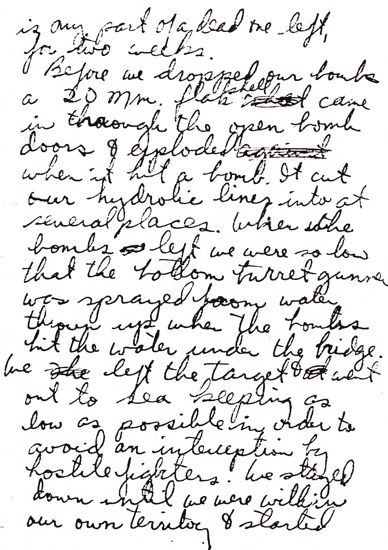 is my part of a dead one left,
for two weeks.
Before we dropped our bombs
a 20 mm. flak shell came
in through the open bomb
doors & exploded against
when it hit a bomb. It cut
our hydrolic lines into at
several places. When the
bombs left we were so low
that the bottom turret gunner
was sprayed from water
thrown up when the bombs
hit the water under the bridge.
We left the target & went
out to sea keeping as
low as possible in order to
avoid an interception by
hostile fighters. We stayed
down until we were within
our own territory & started